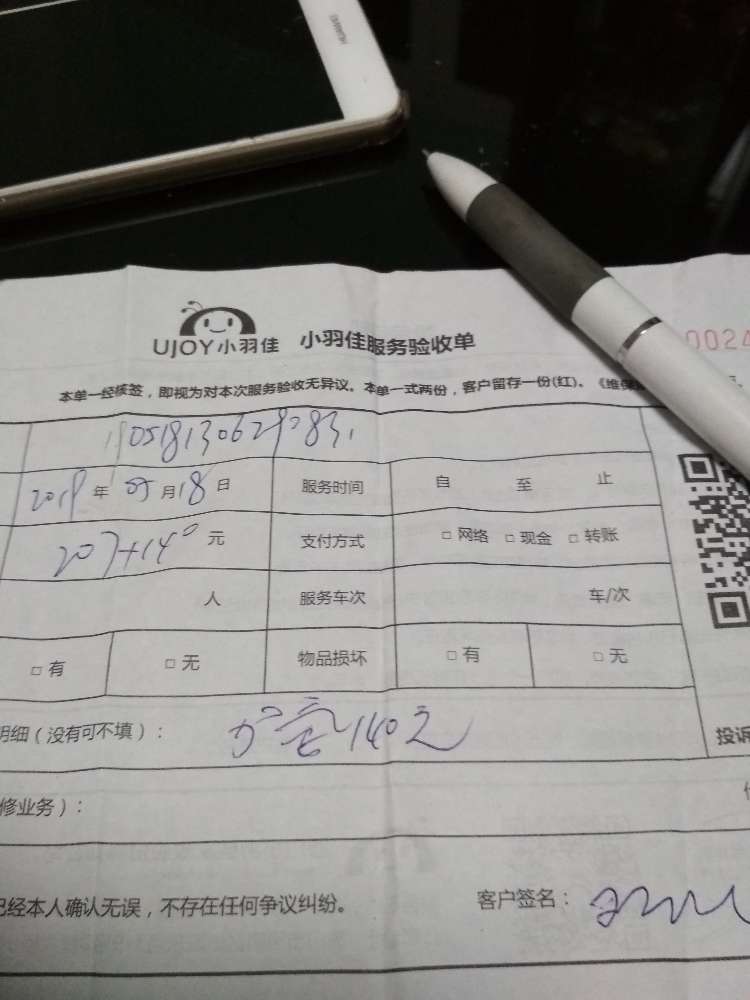 HUAWEI
UJOY小羽佳 小羽佳服务验收单
0024
本单一经核签，即视为对本次服务验收无异议。本单一式两份，客户留存一份(红)。《维保
2019年05月18日 服务时间 自 至 止
207+140元 支付方式 □ 网络 □ 现金 □ 转账
人 服务车次 车/次
□ 有 □ 无 物品损坏 □ 有 □ 无
明细（没有可不填）： 加壹140元
投诉
修业务）：
已经本人确认无误，不存在任何争议纠纷。 客户签名：